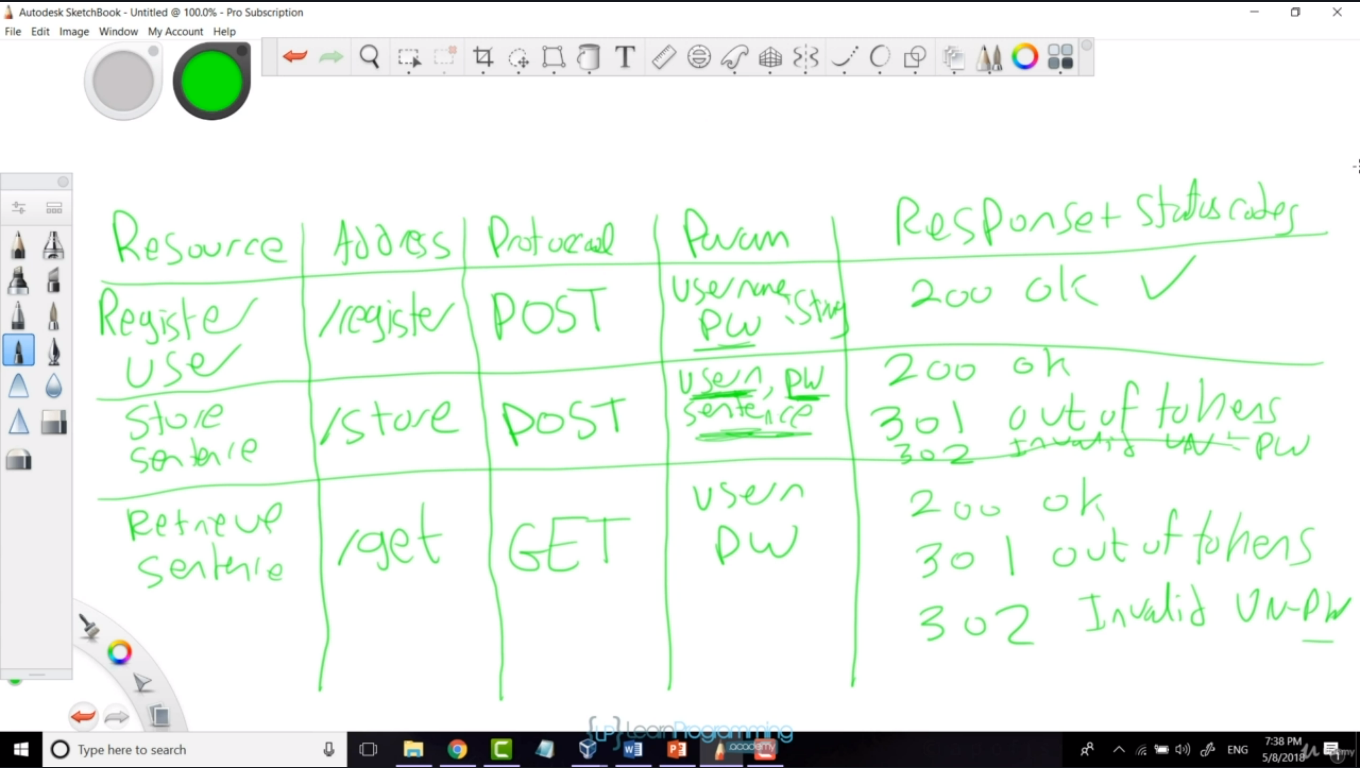 Autodesk SketchBook - Untitled @ 100.0% - Pro Subscription
File Edit Image Window My Account Help
Resource Address Protocol Param Response + Status codes
Register /register POST username, String 200 ok ✓
use PW
Store /store POST usern, PW 200 ok
sentence sentence 301 out of tokens
302 Invalid UN - PW
Retrieve /get GET usern 200 ok
sentence PW 301 out of tokens
302 Invalid UN-PW
{LP} LearnProgramming
academy
Type here to search
ENG 7:38 PM
5/8/2018